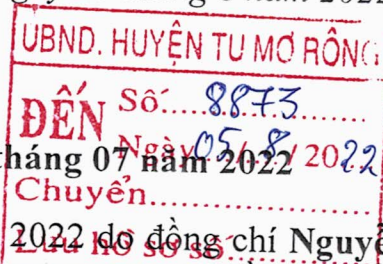 năm 2022
UBND. HUYỆN TU MƠ RÔNG
ĐẾN Số:.....8873
Ngày 05/.8./ 2022
tháng 07 năm 2022
Chuyển
2022 do đồng chí Nguyễ
Lưu hồ sơ số